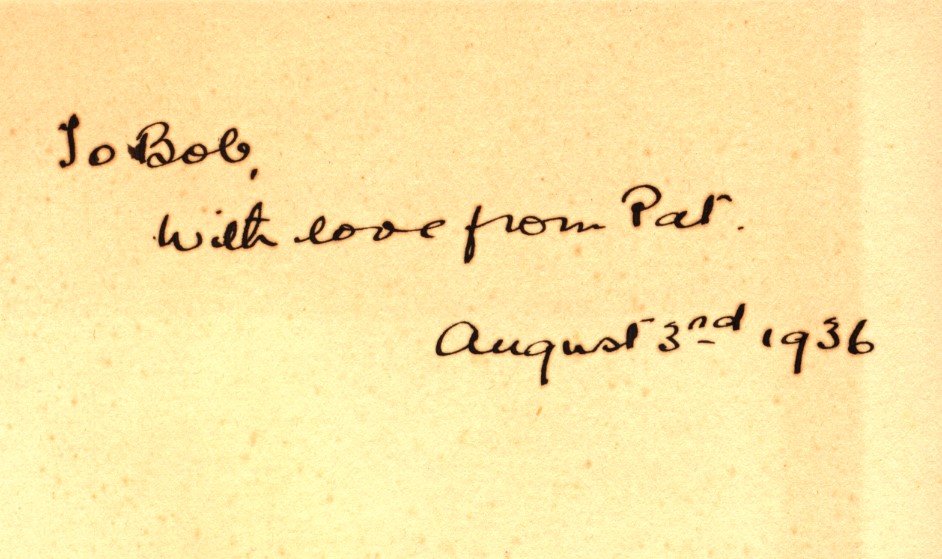 To Bob,
With love from Pat.
August 3rd 1936